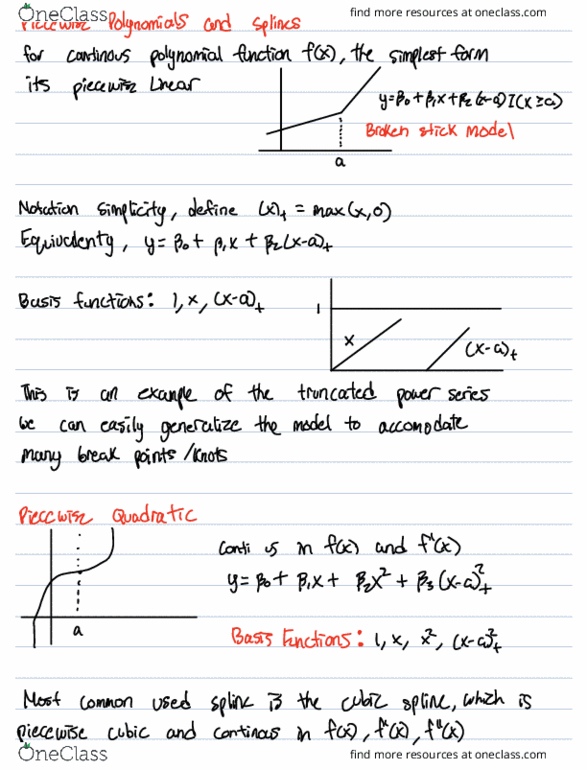 OneClass
find more resources at oneclass.com
Piecewise Polynomials and splines
for continous polynomial function f(x), the simplest form
its piecewise Linear
y=β₀+β₁x+β₂(x-a)I(x≥a)
Broken stick model
a
Notation simplicity, define (x)₊ = max(x,0)
Equivalently, y= β₀+ β₁x + β₂(x-a)₊
Basis functions: 1, x, (x-a)₊
1
x
(x-a)₊
This is an example of the truncated power series
we can easily generalize the model to accomodate
many break points/knots
Piecewise Quadratic
Conti us in f(x) and f'(x)
y= β₀+ β₁x + β₂x² + β₃(x-a)²₊
a
Basis Functions: 1, x, x², (x-a)²₊
Most common used spline is the cubic spline, which is
piecewise cubic and continous in f(x), f'(x), f"(x)
OneClass
find more resources at oneclass.com